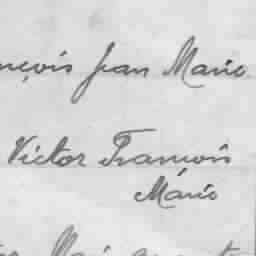 nçois Jean Marie
Victor François
Marie